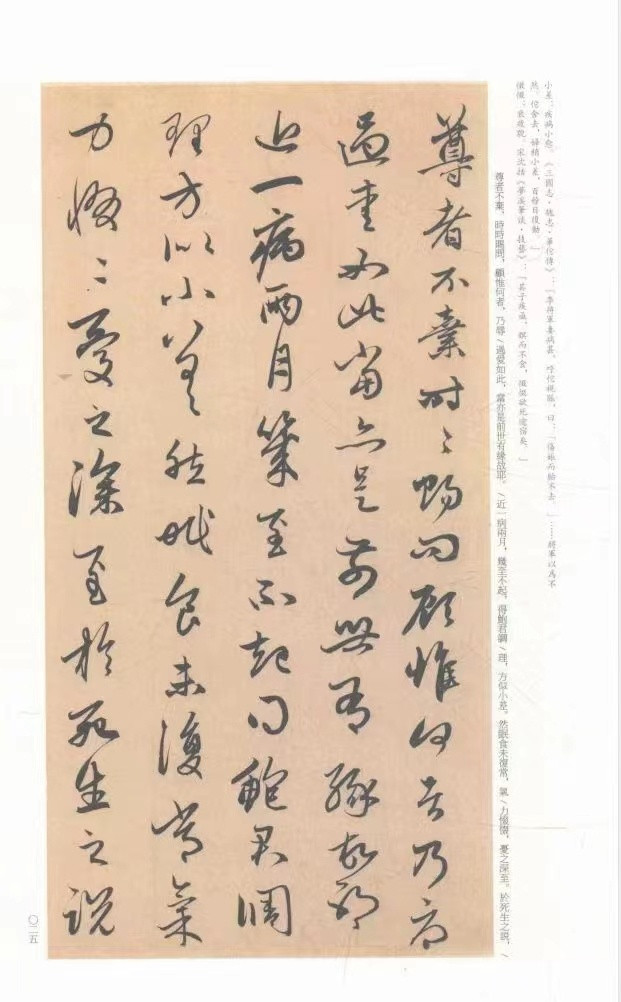 小差：疾病小愈。《三國志·魏志·華佗傳》：「李將軍妻病甚，呼佗視脈，曰：「傷娠而胎不去。」……將軍以為不
然。佗舍去，婦稍小差。百餘日復動。」
惙惙：衰疲貌。宋沈括《夢溪筆談·技藝》：「其子疾亟，瞑而不食，惙惙欲死逾宿矣。」
尊者不棄，時時賜問，顧惟何者，乃辱／過愛如此，當亦是前世有緣故耶。／近一病兩月，幾至不起，得鮑君調／理，方似小差。然眠食未復常，氣／力惙惙，憂之深至。於死生之說，／
尊者不棄時時賜問顧惟何者乃辱
過愛如此當亦是前世有緣故耶
近一病兩月幾至不起得鮑君調
理方似小差然眠食未復常氣
力惙惙憂之深至於死生之說
〇二五